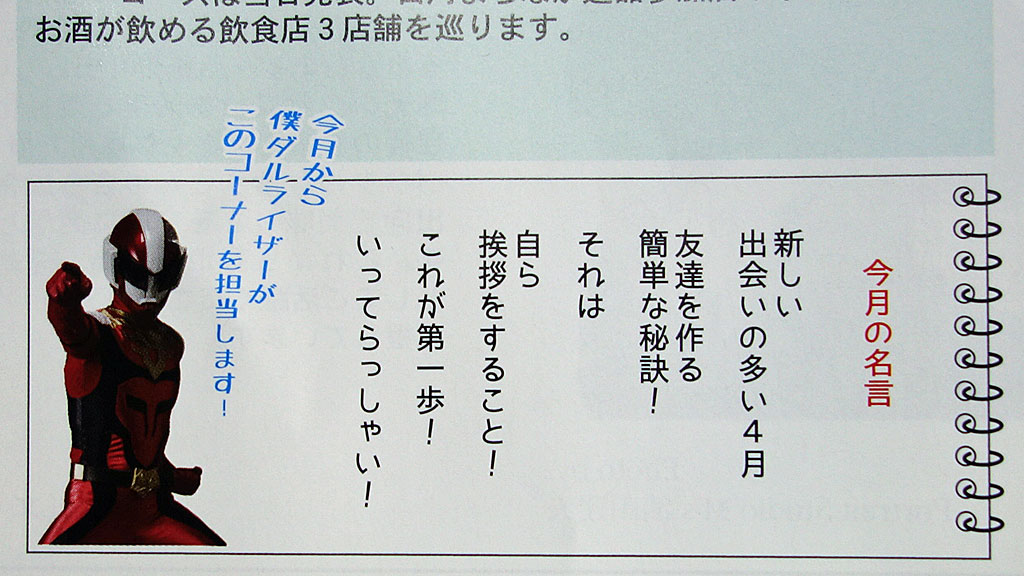 お酒が飲める飲食店３店舗を巡ります。
今月の名言
新しい
出会いの多い４月
友達を作る
簡単な秘訣！
それは
自ら
挨拶をすること！
これが第一歩！
いってらっしゃい！
今月から
僕ダルライザーが
このコーナーを担当します！